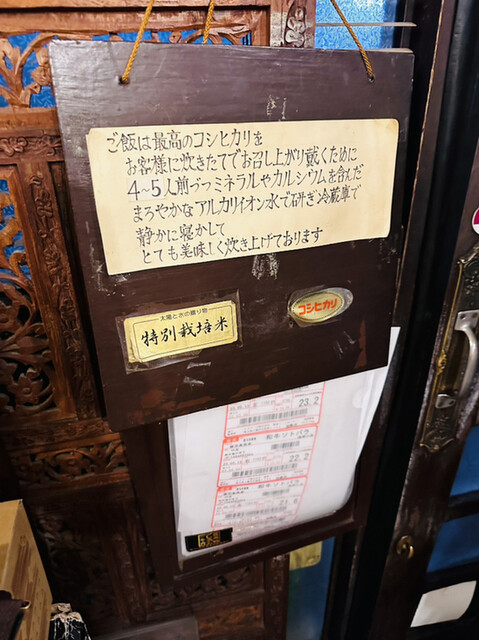 ご飯は最高のコシヒカリを
お客様に炊きたてでお召し上がり戴くために
4~5人前づつミネラルやカルシウムを含んだ
まろやかなアルカリイオン水で研ぎ冷蔵庫で
静かに寝かして
とても美味しく炊き上げております
太陽と水の贈り物
特別栽培米
コシヒカリ
23.2
和牛ソトバラ
22.2
和牛ソトバラ